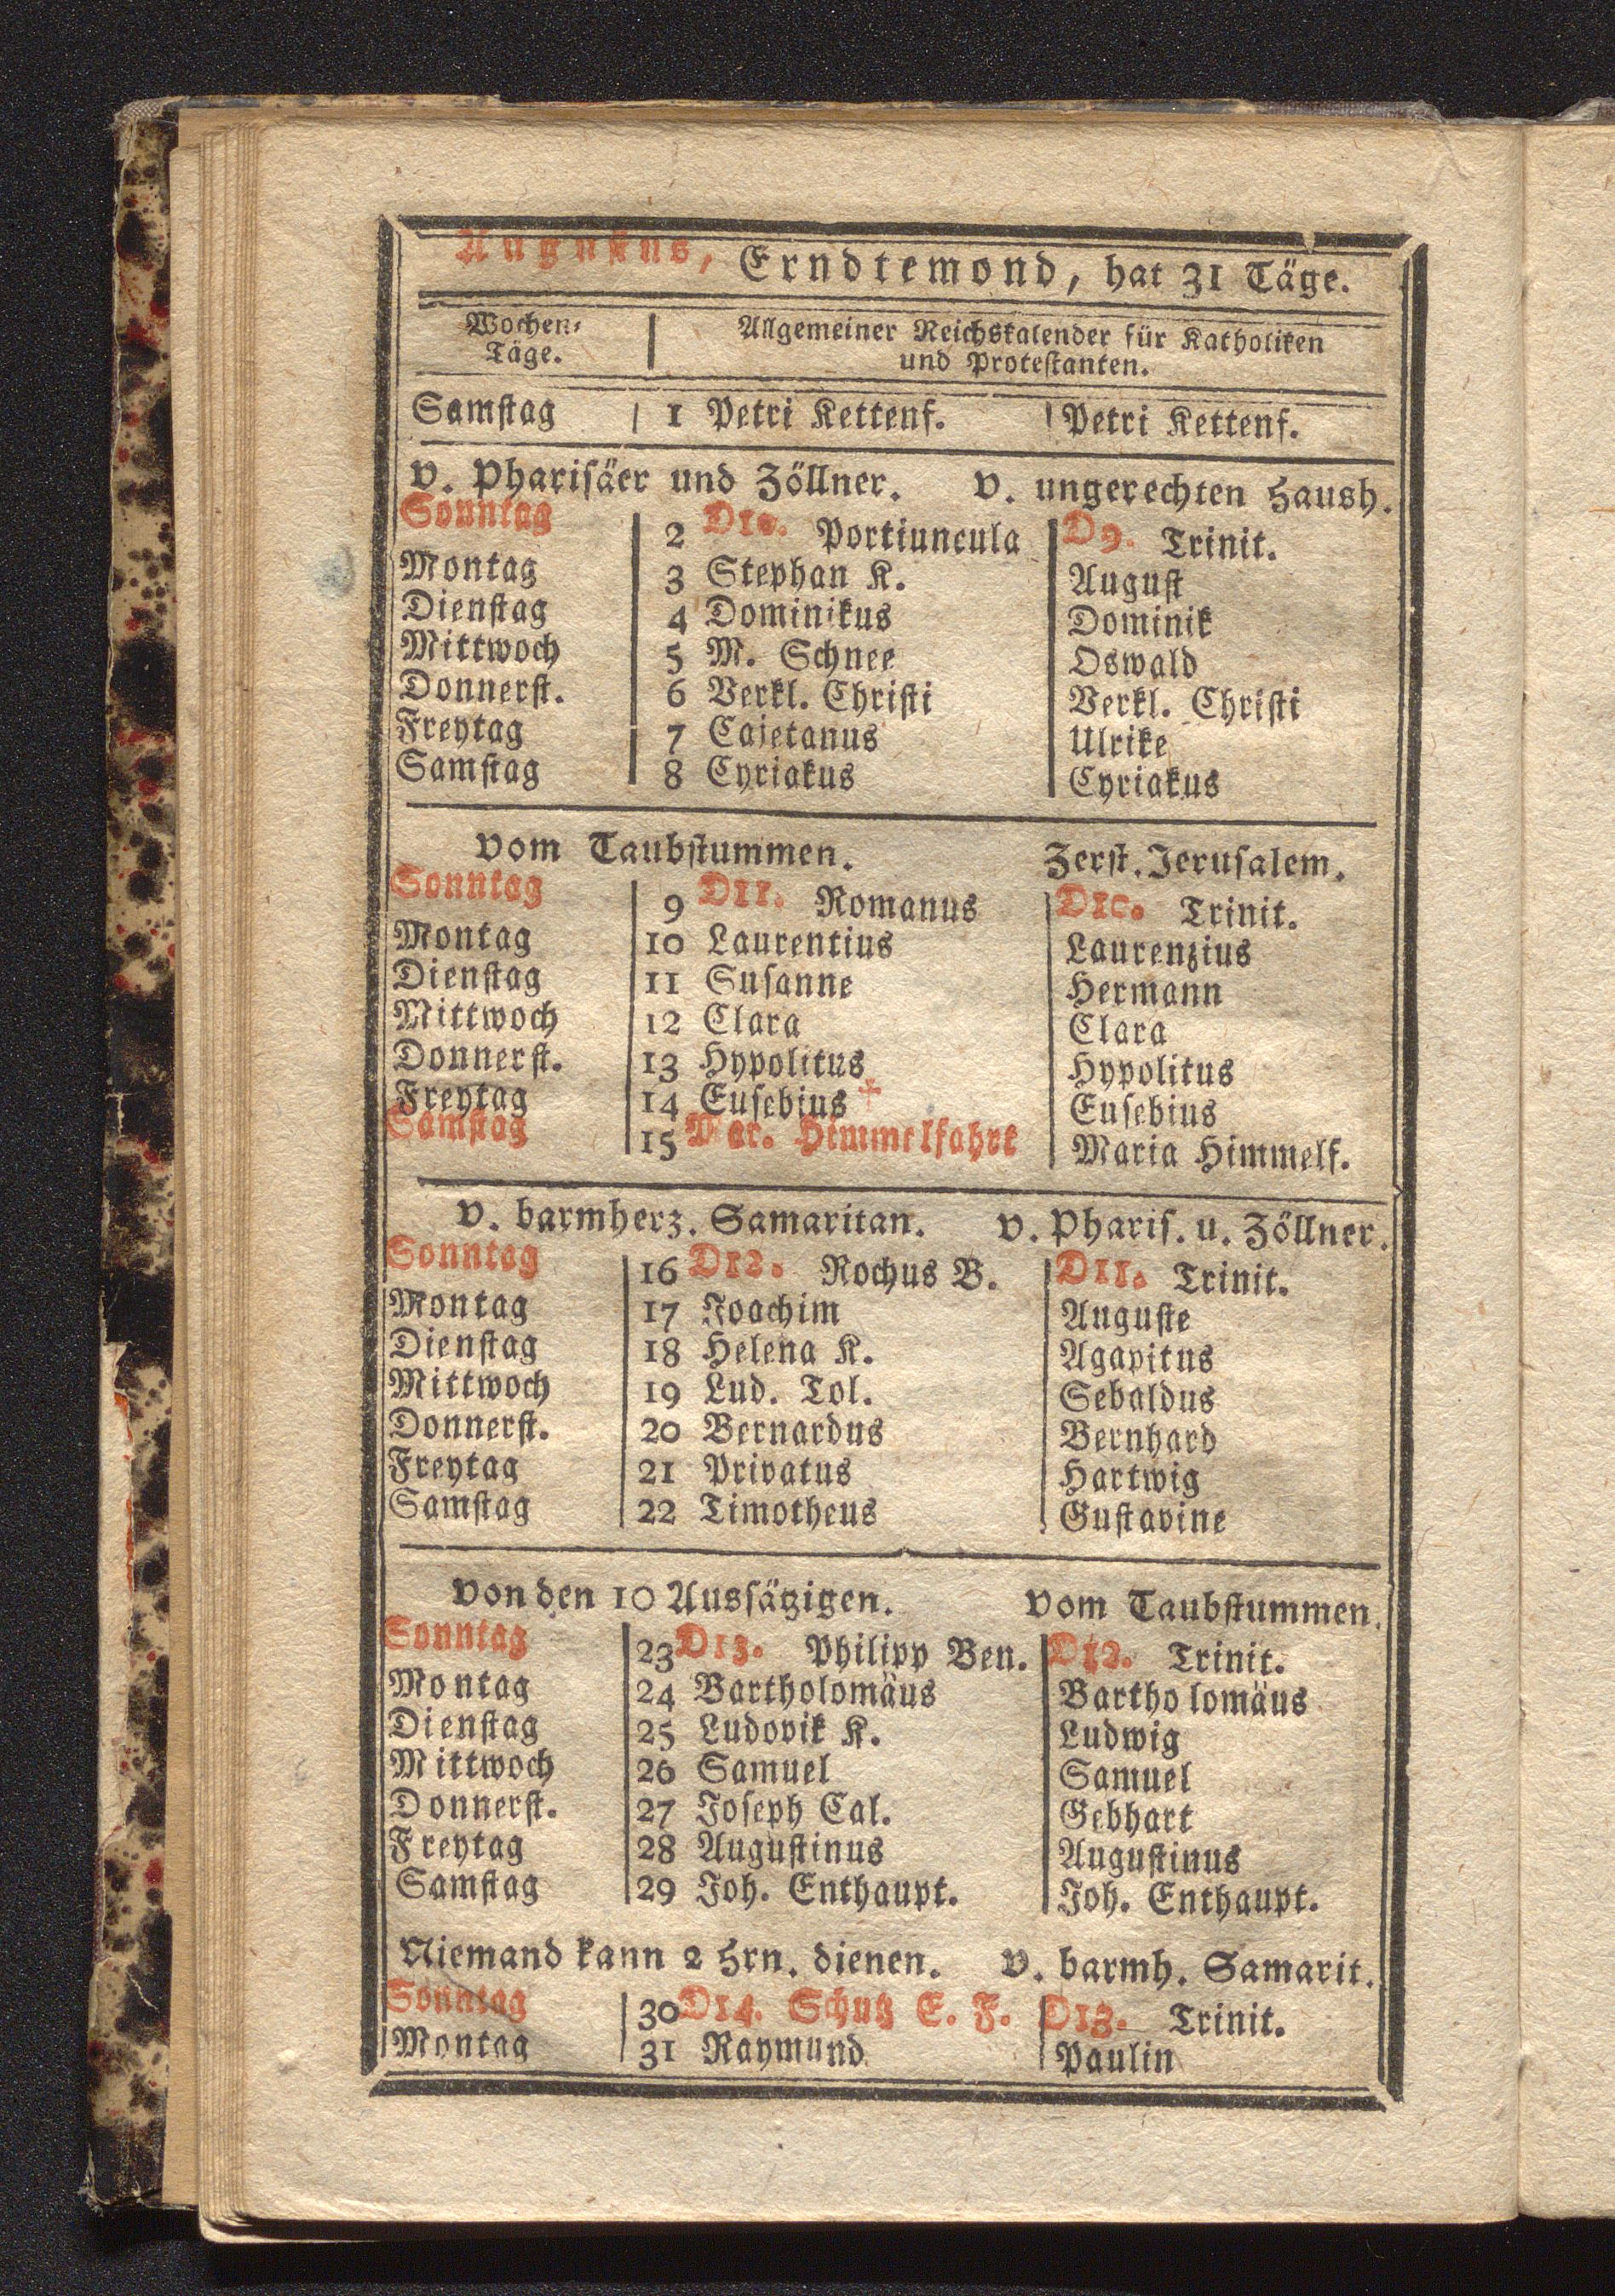 Augustus, Erndtemond, hat 31 Täge.
Wochen- Täge. Allgemeiner Reichskalender für Katholiken und Protestanten.
Samstag 1 Petri Kettenf. Petri Kettenf.
V. Pharisäer und Zöllner. V. ungerechten Haush.
Sonntag 2 D10. Portiuncula D9. Trinit.
Montag 3 Stephan K. August
Dienstag 4 Dominikus Dominik
Mittwoch 5 M. Schnee Oswald
Donnerst. 6 Verkl. Christi Verkl. Christi
Freytag 7 Cajetanus Ulrike
Samstag 8 Cyriakus Cyriakus
Vom Taubstummen. Zerst. Jerusalem.
Sonntag 9 D11. Romanus D10. Trinit.
Montag 10 Laurentius Laurenzius
Dienstag 11 Susanne Hermann
Mittwoch 12 Clara Clara
Donnerst. 13 Hypolitus Hypolitus
Freytag 14 Eusebius † Eusebius
Samstag 15 Mar. Himmelfahrt Maria Himmelf.
V. barmherz. Samaritan. V. Pharis. u. Zöllner.
Sonntag 16 D12. Rochus B. D11. Trinit.
Montag 17 Joachim Auguste
Dienstag 18 Helena K. Agapitus
Mittwoch 19 Lud. Tol. Sebaldus
Donnerst. 20 Bernardus Bernhard
Freytag 21 Privatus Hartwig
Samstag 22 Timotheus Gustavine
Von den 10 Aussätzigen. Vom Taubstummen.
Sonntag 23 D13. Philipp Ben. D12. Trinit.
Montag 24 Bartholomäus Bartholomäus
Dienstag 25 Ludovik K. Ludwig
Mittwoch 26 Samuel Samuel
Donnerst. 27 Joseph Cal. Gebhart
Freytag 28 Augustinus Augustinus
Samstag 29 Joh. Enthaupt. Joh. Enthaupt.
Niemand kann 2 Hrn. dienen. V. barmh. Samarit.
Sonntag 30 D14. Schutz E. F. D13. Trinit.
Montag 31 Raymund Paulin